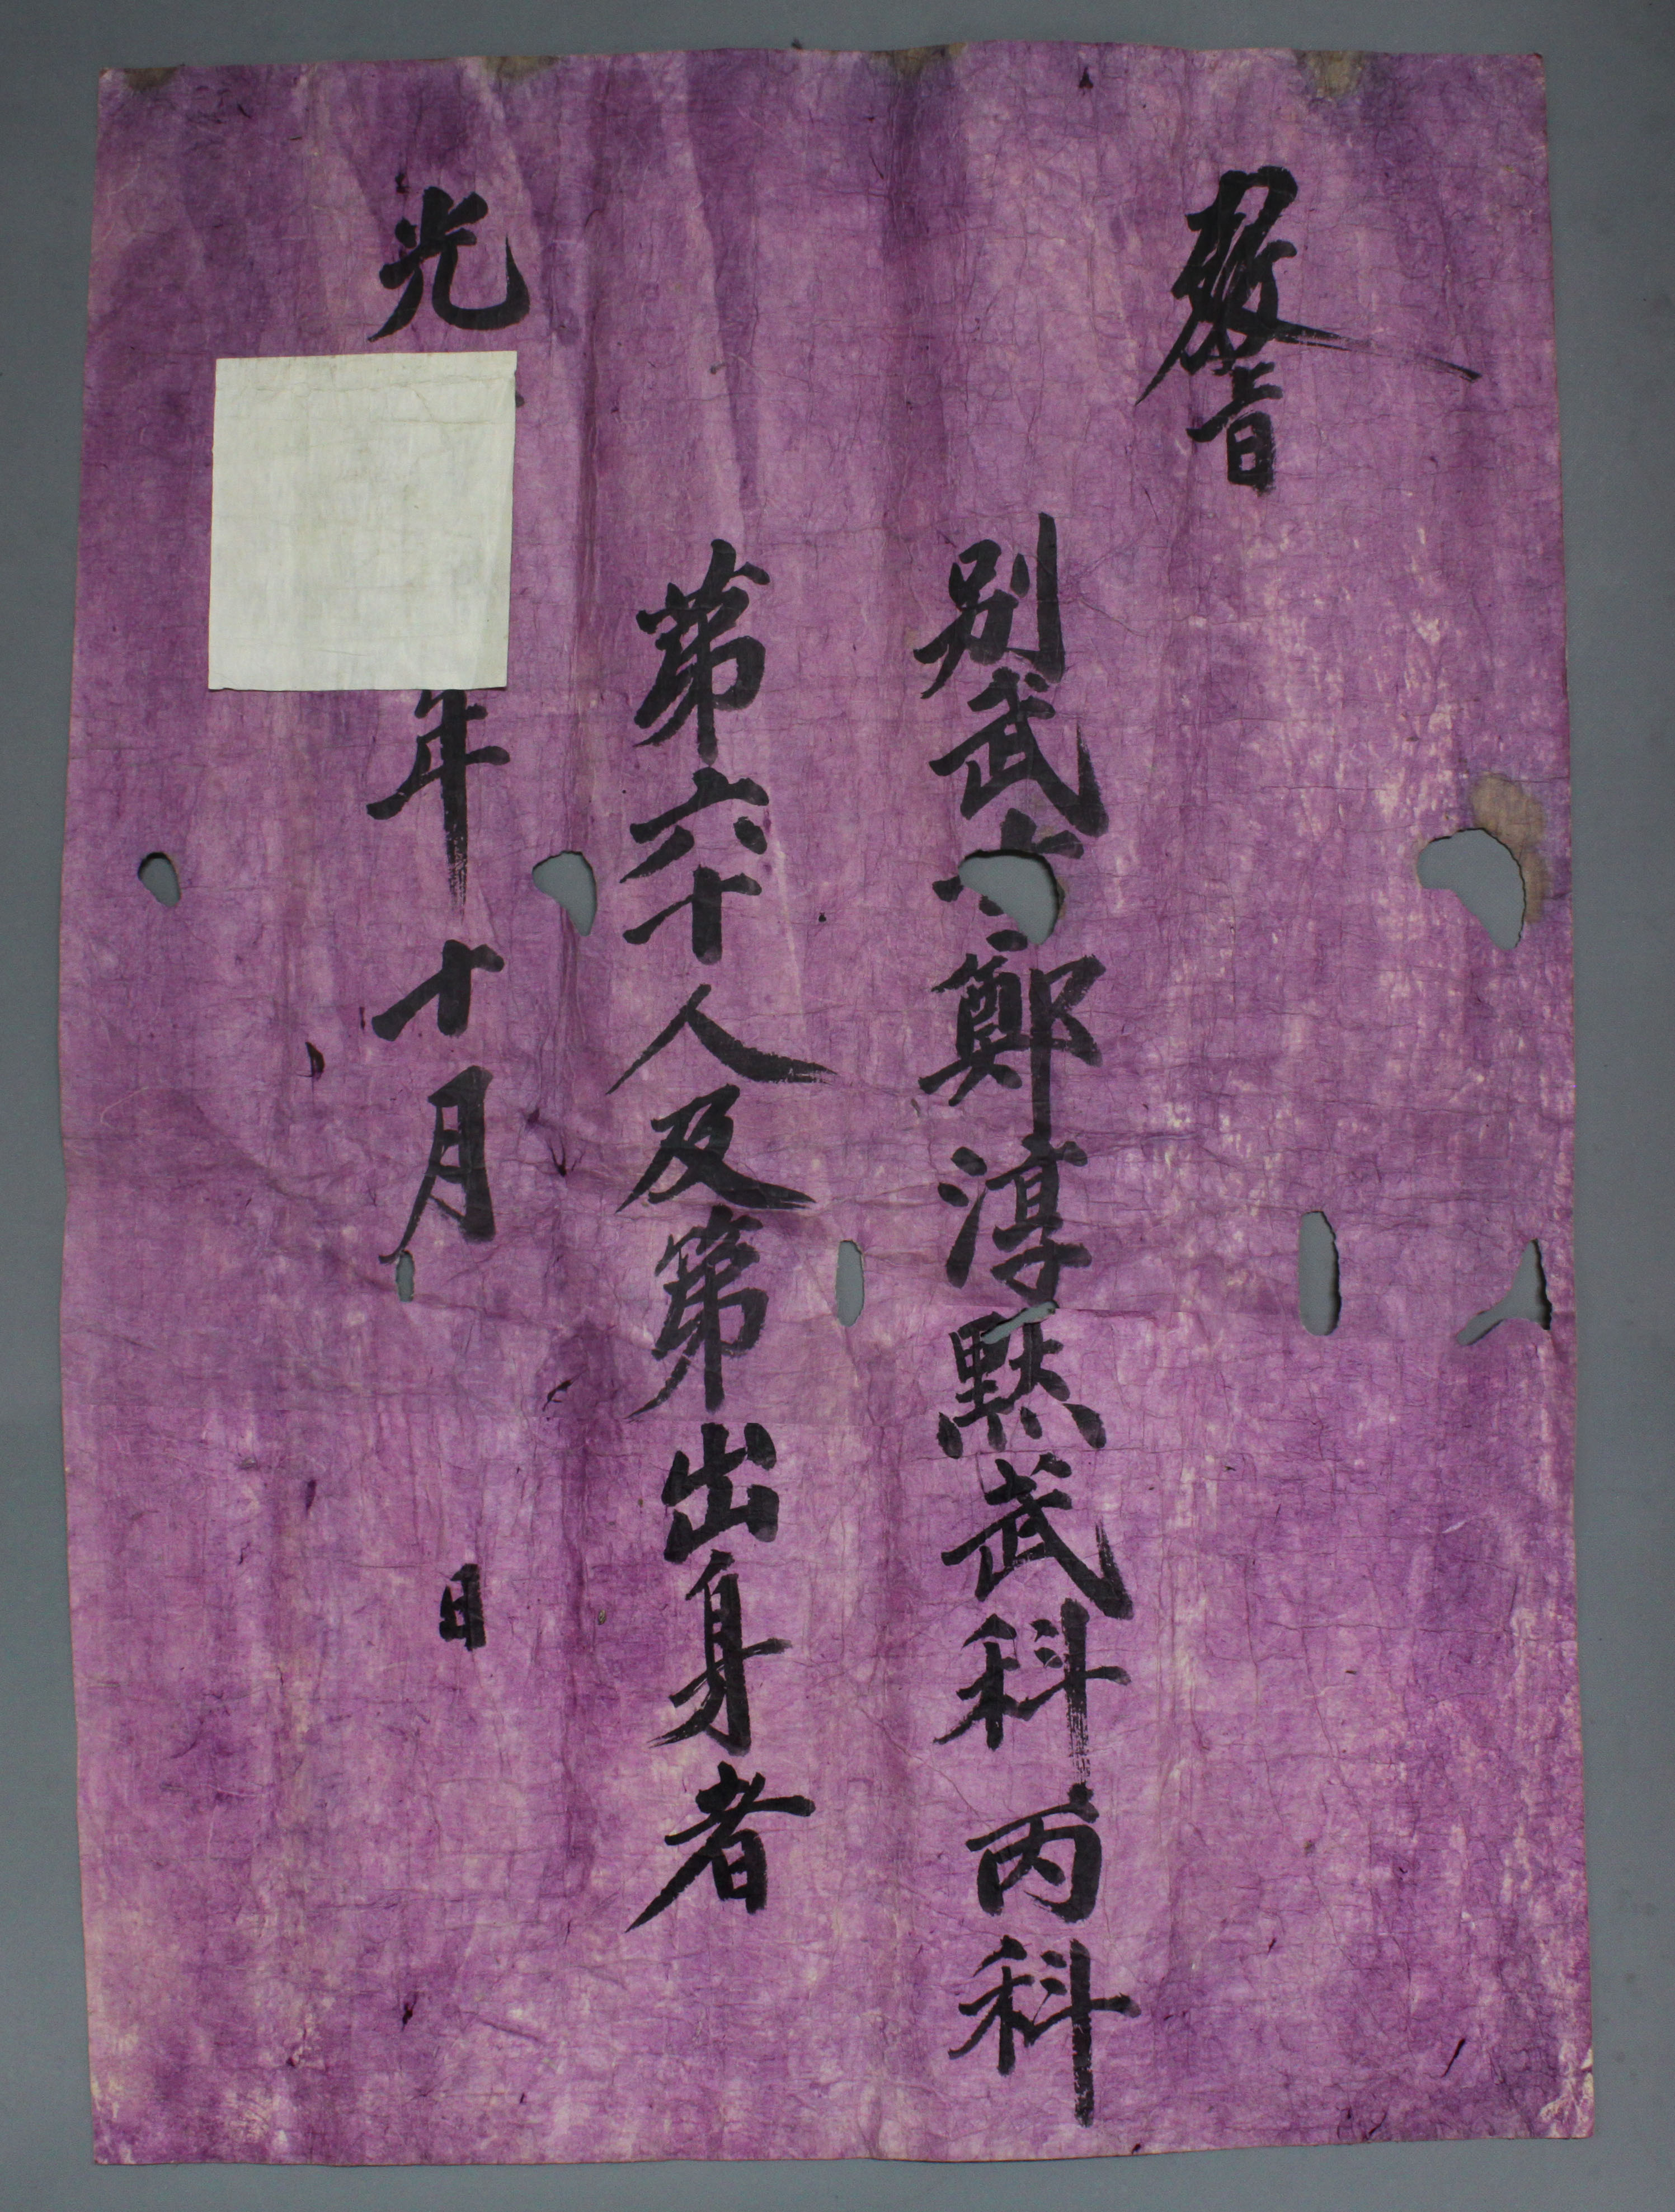 敎旨
別武士鄭淳默武科丙科
第六十人及第出身者
光 年十月 日